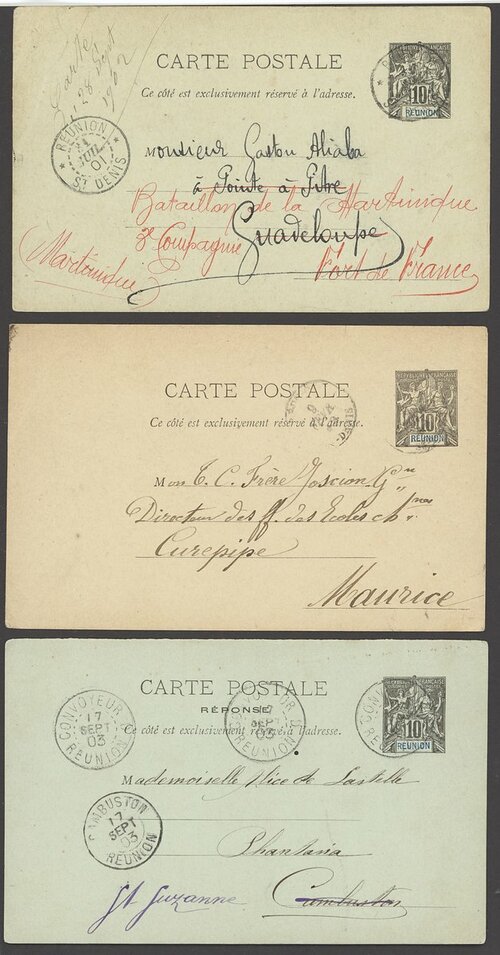 Partie
28 Sept
1902
CARTE POSTALE
Ce côté est exclusivement réservé à l'adresse.
RÉPUBLIQUE FRANÇAISE
10
RÉUNION
REUNION
JUIL
01
ST DENIS
Monsieur Gaston Aliaba
à Pointe à Pitre
Bataillon de la Martinique
Guadeloupe
3e Compagnie
Martinique
Fort de France
CARTE POSTALE
Ce côté est exclusivement réservé à l'adresse.
9
DENIS
RÉPUBLIQUE FRANÇAISE
10
RÉUNION
Mon T. C. Frère Joscion-G
Directeur des ff. des Ecoles
Curepipe
Maurice
CARTE POSTALE
RÉPONSE
Ce côté est exclusivement réservé à l'adresse.
CONVOYEUR
17
SEPT
03
REUNION
CONVOYEUR
17
SEPT
03
REUNION
CONVOY
RE
RÉPUBLIQUE FRANÇAISE
10
RÉUNION
Mademoiselle Alice de Lastelle
CAMBUSTON
17
SEPT
03
REUNION
Phantasia
Cambuston
St Suzanne